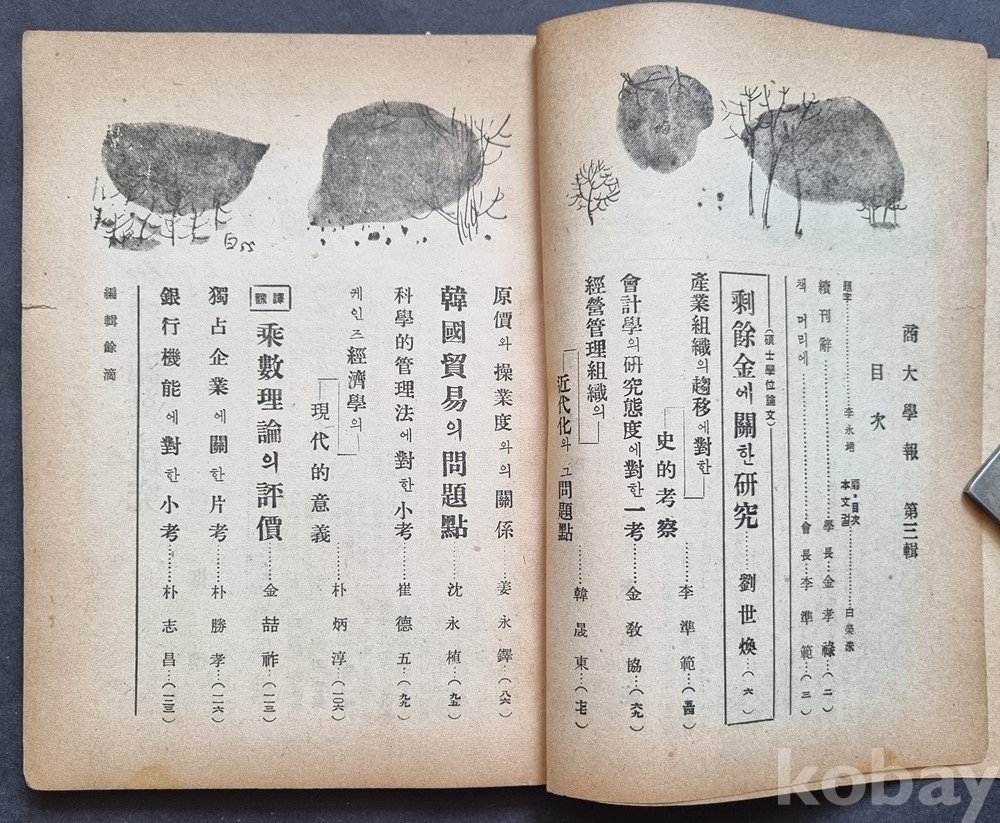 商大學報 第三輯
目次
題字……李永增
扉·目次
本文컽……白榮洙
續刊辭……學長 金孝祿…(二)
책 머리에……會長 李準範…(三)
(碩士學位論文)
剩餘金에 關한 硏究……劉世煥…(六)
產業組織의 趨移에 對한
史的考察……李準範…(五四)
會計學의 硏究態度에 對한 一考……金敎協…(六九)
經營管理組織의
近代化와 그 問題點……韓晟東…(七七)
原價와 操業度와의 關係……姜永鐸…(八六)
韓國貿易의 問題點……沈永植…(九五)
科學的管理法에 對한 小考……崔德五…(九九)
케인즈 經濟學의
現代的意義……朴炳淳…(一〇六)
飜譯 乘數理論의 評價……金喆祚…(一一三)
獨占企業에 關한 片考……朴勝孝…(一一六)
銀行機能에 對한 小考……朴志昌…(一二三)
編輯餘滴
白55
kobay